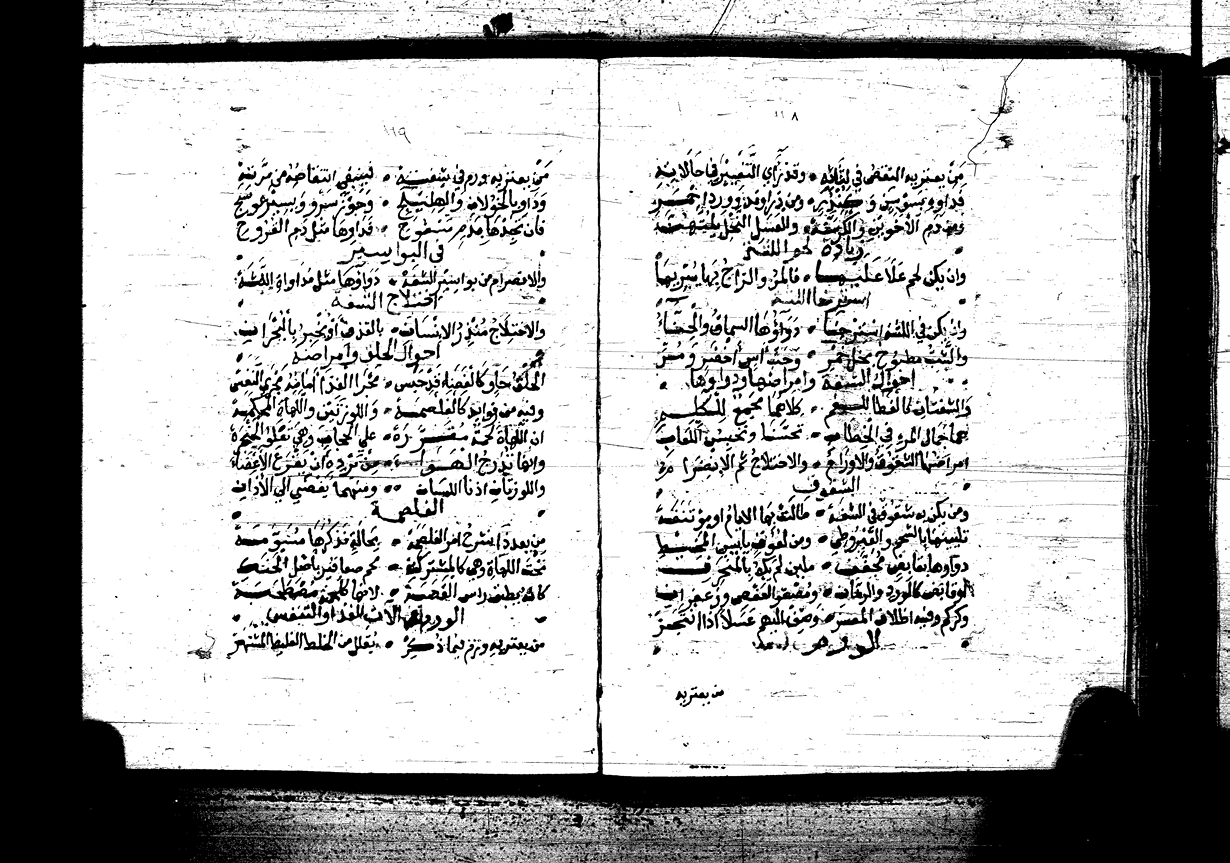 ١١٨
من يعتريه النقص في لثاته • وقد رأى التغيير في حالاته
فداوه بسوسن و • ومن ذراوند وورد أحمر
دم الأخوين والكرسنة • والعسل النحل
زيادة لحم اللثة
وإن يكن لحم علا عليها • فالمر والزاج بها يبريها
استرخاء اللثة
وإن يكن في اللثة استرخاء • دواؤها السماق والحناء
والشب مطبوخ بخل خمر • وحب آس أخضر ومر
أحوال الشفة وأمراضها ودواؤها
والشفتان كالغطا للفم • كلاهما مجمع للكلم
هما جمال المرء في الخطاب • تحسنا وتحسن اللغات
أمراضها الشقوق والأورام • والاختلاج ثم الانصرام
الشقوق
ومن يكن به شقوق في الشفة • طالت بها الأيام أو مؤتنفة
تليينها بالشحم والقيروطي • ومن لعوق
دواؤها بقابض مجفف • ملين لم يك بالمنحرف
أو قابض كالورد والرمان • وعفص وزعفران
وكركم وفيه أطلاق المصر • وصف اليه عسلا إذا انتحز
الورم
من يعتريه
١١٩
من يعتريه ورم في شفته • فينبغي انتقاصه من مرته
وداو بالخولان والهليلج •
فإن تجدها بدم • فداوها مثل دم الفروج
في البواسير
والانصرام من بواسير الشفة • دواؤها مثل مداواة اللثة
اختلاج الشفة
والاختلاج منذر الإنسان • بالقذف أو يخبر بالبحران
أحوال الحلق وأمراضه
الحلق حاو كالقصبة قد حبس • مجرا الغذا أمامه مجرى النفس
وفيه من فوائد كالغلصمة • واللوزتين واللهاة المحكمة
إن اللهاة لحمة • على الحجاب وهي تعلو الحنجرة
وإنها تدرج الهوا • من برده أن يقرع الأعضاء
واللوزتان أذنا اللسان • ومنهما يفضي إلى الآذان
الغلصمة
من بعد ذا نشرح أمر الغلصمة • بحالة نذكرها مستوسمة
تحت اللهاة وهي كالمشتركة • لحم صفاقي بأصل الحنكة
كأنه يطبق رأس القصبة • لأنها كلحمة مصطحبة
الورم في آلات الغذا والتنفس
من يعتريه ورم فيما ذكر • يقلل من الخلط الغليظ المشتهر